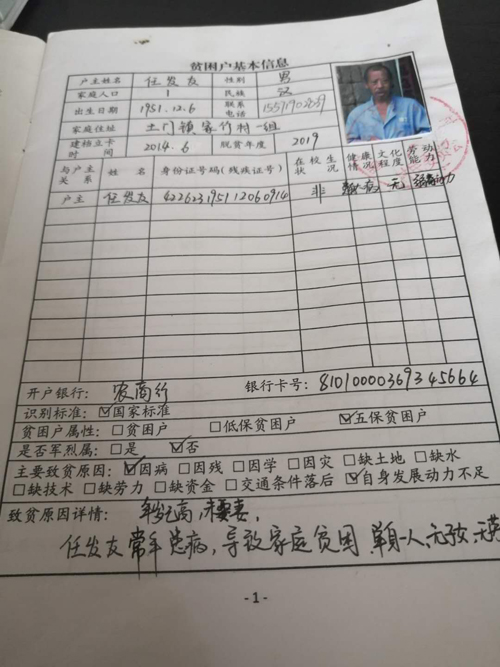 贫困户基本信息
户主姓名 任发友 性别 男
家庭人口 1 民族 汉
出生日期 1951.12.6 联系电话
家庭住址 土门镇 村一组
建档立卡时间 2014.6 脱贫年度 2019
与户主关系 姓名 身份证号码(残疾证号) 在校生状况 健康情况 文化程度 劳动能力
户主 任发友 422623195112060914 非 病 无 动力
开户银行: 农商行 银行卡号: 81010000369345664
识别标准: ☑国家标准
贫困户属性: □贫困户 □低保贫困户 ☑五保贫困户
是否军烈属: □是 ☑否
主要致贫原因: ☑因病 □因残 □因学 □因灾 □缺土地 □缺水
□缺技术 □缺劳力 □缺资金 □交通条件落后 ☑自身发展动力不足
致贫原因详情: 年纪高,未娶妻,
任发友常年患病,导致家庭贫困 单身一人、无孩、无
- 1 -